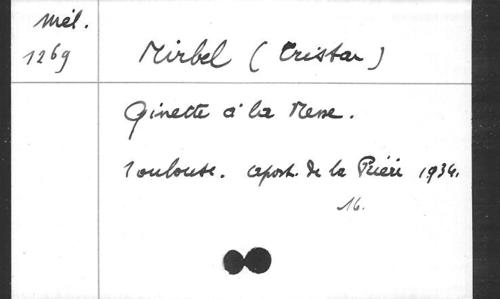 Mél.
1269
Mirbel (Tristan)
Ginette à la Messe.
Toulouse. Apost. de la Prière 1934.
16.